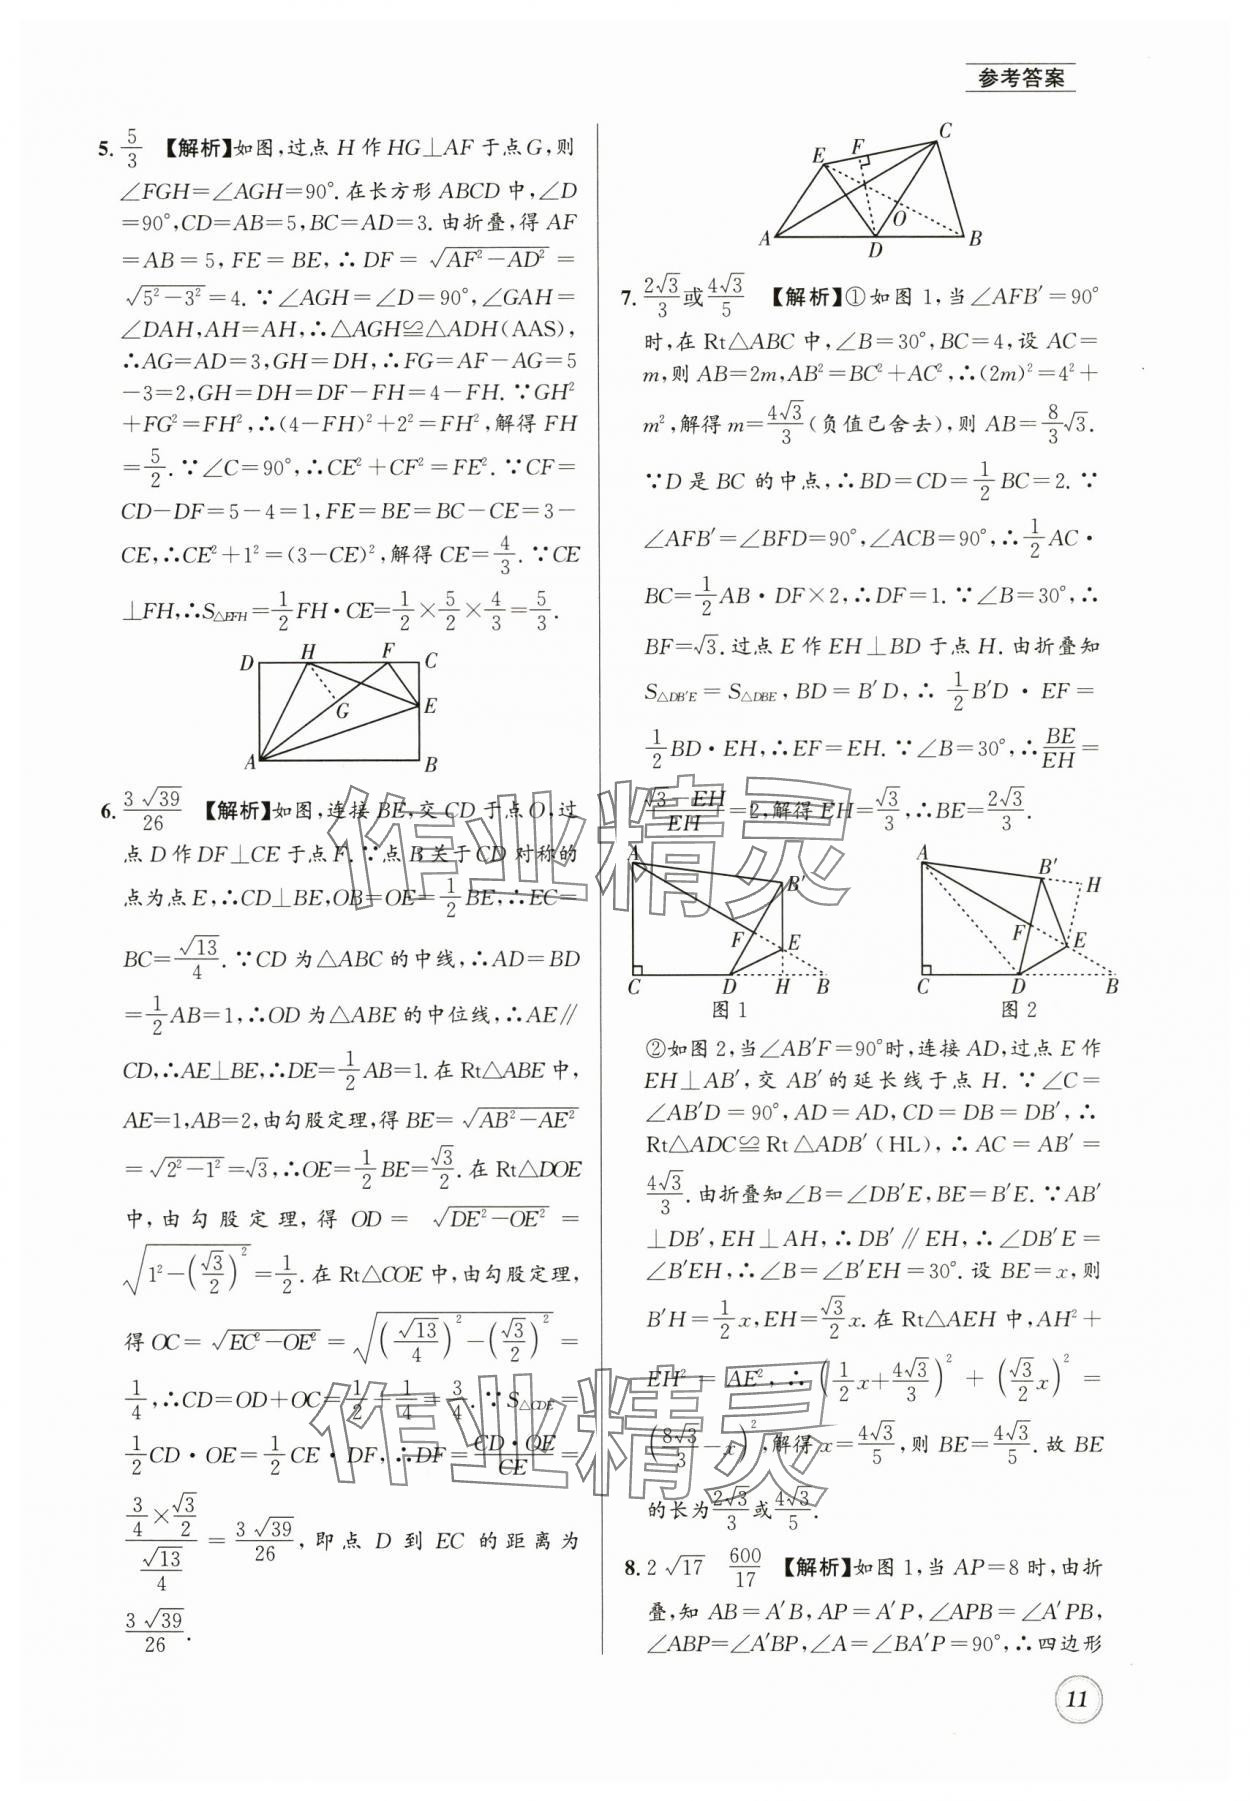 参考答案
5. 5/3 【解析】如图,过点 H 作 HG⊥AF 于点 G,则
∠FGH=∠AGH=90°. 在长方形 ABCD 中,∠D
=90°,CD=AB=5,BC=AD=3. 由折叠,得 AF
=AB=5,FE=BE,∴DF=√(AF²−AD²)=
√(5²−3²)=4. ∵∠AGH=∠D=90°,∠GAH=
∠DAH,AH=AH,∴△AGH≌△ADH(AAS),
∴AG=AD=3,GH=DH,∴FG=AF−AG=5
−3=2,GH=DH=DF−FH=4−FH. ∵GH²
+FG²=FH²,∴(4−FH)²+2²=FH²,解得 FH
=5/2. ∵∠C=90°,∴CE²+CF²=FE². ∵CF=
CD−DF=5−4=1,FE=BE=BC−CE=3−
CE,∴CE²+1²=(3−CE)²,解得 CE=4/3. ∵CE
⊥FH,∴S△EFH=1/2 FH·CE=1/2×5/2×4/3=5/3.
D H F C
G E
A B
6. 3√39/26 【解析】如图,连接 BE,交 CD 于点 O,过
点 D 作 DF⊥CE 于点 F. ∵点 B 关于 CD 对称的
点为点 E,∴CD⊥BE,OB=OE=1/2 BE,∴EC=
BC=√13/4. ∵CD 为△ABC 的中线,∴AD=BD
=1/2 AB=1,∴OD 为△ABE 的中位线,∴AE∥
CD,∴AE⊥BE,∴DE=1/2 AB=1. 在 Rt△ABE 中,
AE=1,AB=2,由勾股定理,得 BE=√(AB²−AE²)
=√(2²−1²)=√3,∴OE=1/2 BE=√3/2. 在 Rt△DOE
中,由勾股定理,得 OD=√(DE²−OE²)=
√(1²−(√3/2)²)=1/2. 在 Rt△COE 中,由勾股定理,
得 OC=√(EC²−OE²)=√((√13/4)²−(√3/2)²)=
1/4,∴CD=OD+OC=1/2+1/4=3/4. ∵S△CDE=
1/2 CD·OE=1/2 CE·DF,∴DF=CD·OE/CE=
(3/4×√3/2)/(√13/4)=3√39/26,即点 D 到 EC 的距离为
3√39/26.
C
E F
O
A D B
7. 2√3/3或4√3/5 【解析】①如图 1,当∠AFB′=90°
时,在 Rt△ABC 中,∠B=30°,BC=4,设 AC=
m,则 AB=2m,AB²=BC²+AC²,∴(2m)²=4²+
m²,解得 m=4√3/3(负值已舍去),则 AB=8/3√3.
∵D 是 BC 的中点,∴BD=CD=1/2 BC=2. ∵
∠AFB′=∠BFD=90°,∠ACB=90°,∴1/2 AC·
BC=1/2 AB·DF×2,∴DF=1. ∵∠B=30°,∴
BF=√3. 过点 E 作 EH⊥BD 于点 H. 由折叠知
S△DB′E=S△DBE,BD=B′D,∴1/2 B′D·EF=
1/2 BD·EH,∴EF=EH. ∵∠B=30°,∴BE/EH=
(√3−EH)/EH=2,解得 EH=√3/3,∴BE=2√3/3.
A B′ F E C D H B
图 1
A B′ H F E C D B
图 2
②如图 2,当∠AB′F=90°时,连接 AD,过点 E 作
EH⊥AB′,交 AB′的延长线于点 H. ∵∠C=
∠AB′D=90°,AD=AD,CD=DB=DB′,∴
Rt△ADC≌Rt△ADB′(HL),∴AC=AB′=
4√3/3. 由折叠知∠B=∠DB′E,BE=B′E. ∵AB′
⊥DB′,EH⊥AH,∴DB′∥EH,∴∠DB′E=
∠B′EH,∴∠B=∠B′EH=30°. 设 BE=x,则
B′H=1/2 x,EH=√3/2 x. 在 Rt△AEH 中,AH²+
EH²=AE²,∴(1/2 x+4√3/3)²+(√3/2 x)²=
(8√3/3−x)²,解得 x=4√3/5,则 BE=4√3/5. 故 BE
的长为2√3/3或4√3/5.
8. 2√17 600/17 【解析】如图 1,当 AP=8 时,由折
叠,知 AB=A′B,AP=A′P,∠APB=∠A′PB,
∠ABP=∠A′BP,∠A=∠BA′P=90°,∴四边形
11
作业精灵
作业精灵